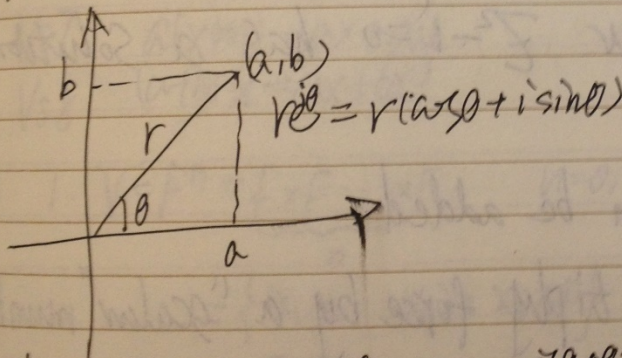 b
(a,b)
re^{iθ} = r(cosθ + i sinθ)
r
θ
a